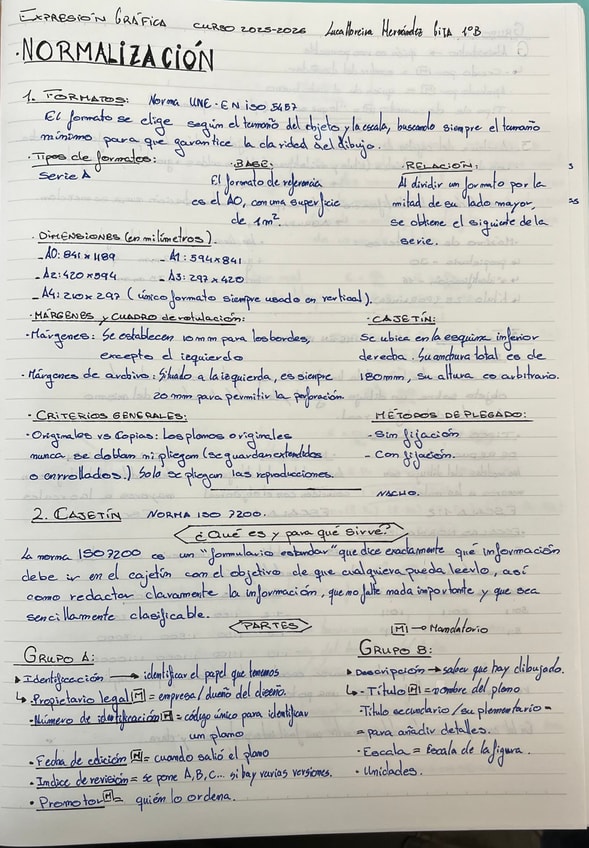 EXPRESIÓN GRÁFICA CURSO 2025-2026 Luca Moreira Hernández GITA 1ºB
·NORMALIZACIÓN
1. FORMATOS: Norma UNE-EN ISO 5457
El formato se elige según el tamaño del objeto y la escala, buscando siempre el tamaño
mínimo para que garantice la claridad del dibujo.
·Tipos de formatos:
Serie A
·BASE:
El formato de referencia
es el A0, con una superficie
de 1m².
·RELACIÓN:
Al dividir un formato por la
mitad de su lado mayor,
se obtiene el siguiente de la
serie.
·DIMENSIONES (en milímetros).
-A0: 841 x 1189 -A1: 594x841
-A2: 420x594 -A3: 297x420
-A4: 210x297 (único formato siempre usado en vertical).
·MÁRGENES y CUADRO de rotulación:
·Márgenes: Se establecen 10mm para los bordes,
excepto el izquierdo
·Márgenes de archivo: Situado a la izquierda, es siempre
20 mm para permitir la perforación.
·CAJETÍN:
Se ubica en la esquina inferior
derecha. Su anchura total es de
180mm, su altura es arbitrario.
·CRITERIOS GENERALES:
·Originales vs Copias: Los planos originales
nunca se doblan ni pliegan (se guardan extendidos
o enrrollados.) Solo se pliegan las reproducciones.
MÉTODOS DE PLEGADO:
-Sin fijación
-Con fijación.
NACHO.
2. CAJETÍN NORMA ISO 7200.
¿Qué es y para qué sirve?
La norma ISO7200 es un "formulario estandar" que dice exactamente qué información
debe ir en el cajetín con el objetivo de que cualquiera pueda leerlo, así
como redactar claramente la información, que no falte nada importante y que sea
sencillamente clasificable.
PARTES
M → Mandatorio
GRUPO A:
▸Identificación → identificar el papel que tenemos
↳·Propietario legal M = empresa/dueño del diseño.
·Número de identificación M = código único para identificar
un plano
·Fecha de edición M = cuando salió el plano
·Indice de revisión = se pone A,B,C... si hay varias versiones.
·Promotor M = quién lo ordena.
GRUPO B:
▸Descripción → saber que hay dibujado.
↳·Título M = nombre del plano
-Titulo secundario /suplementario =
= para añadir detalles.
·Escala = Escala de la figura.
·Unidades.